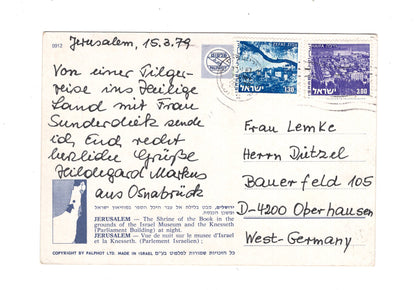 0912
Jerusalem, 15.3.79
Von einer Pilger-
reise ins Heilige
Land mit Frau
Sunderdiek sende
ich Euch recht
herzliche Grüße
Hildegard Markus
aus Osnabrück
ישראל ISRAEL
1.30
ישראל ISRAEL
3.00
Frau Lemke
Herrn Dützel
Bauerfeld 105
D-4200 Oberhausen
West-Germany
JERUSALEM — The Shrine of the Book in the
grounds of the Israel Museum and the Knesseth
(Parliament Building) at night.
JERUSALEM — Vue de nuit sur le musee d'Israel
et la Knesseth. (Parlement Israelien) ;
COPYRIGHT BY PALPHOT LTD. MADE IN ISRAEL